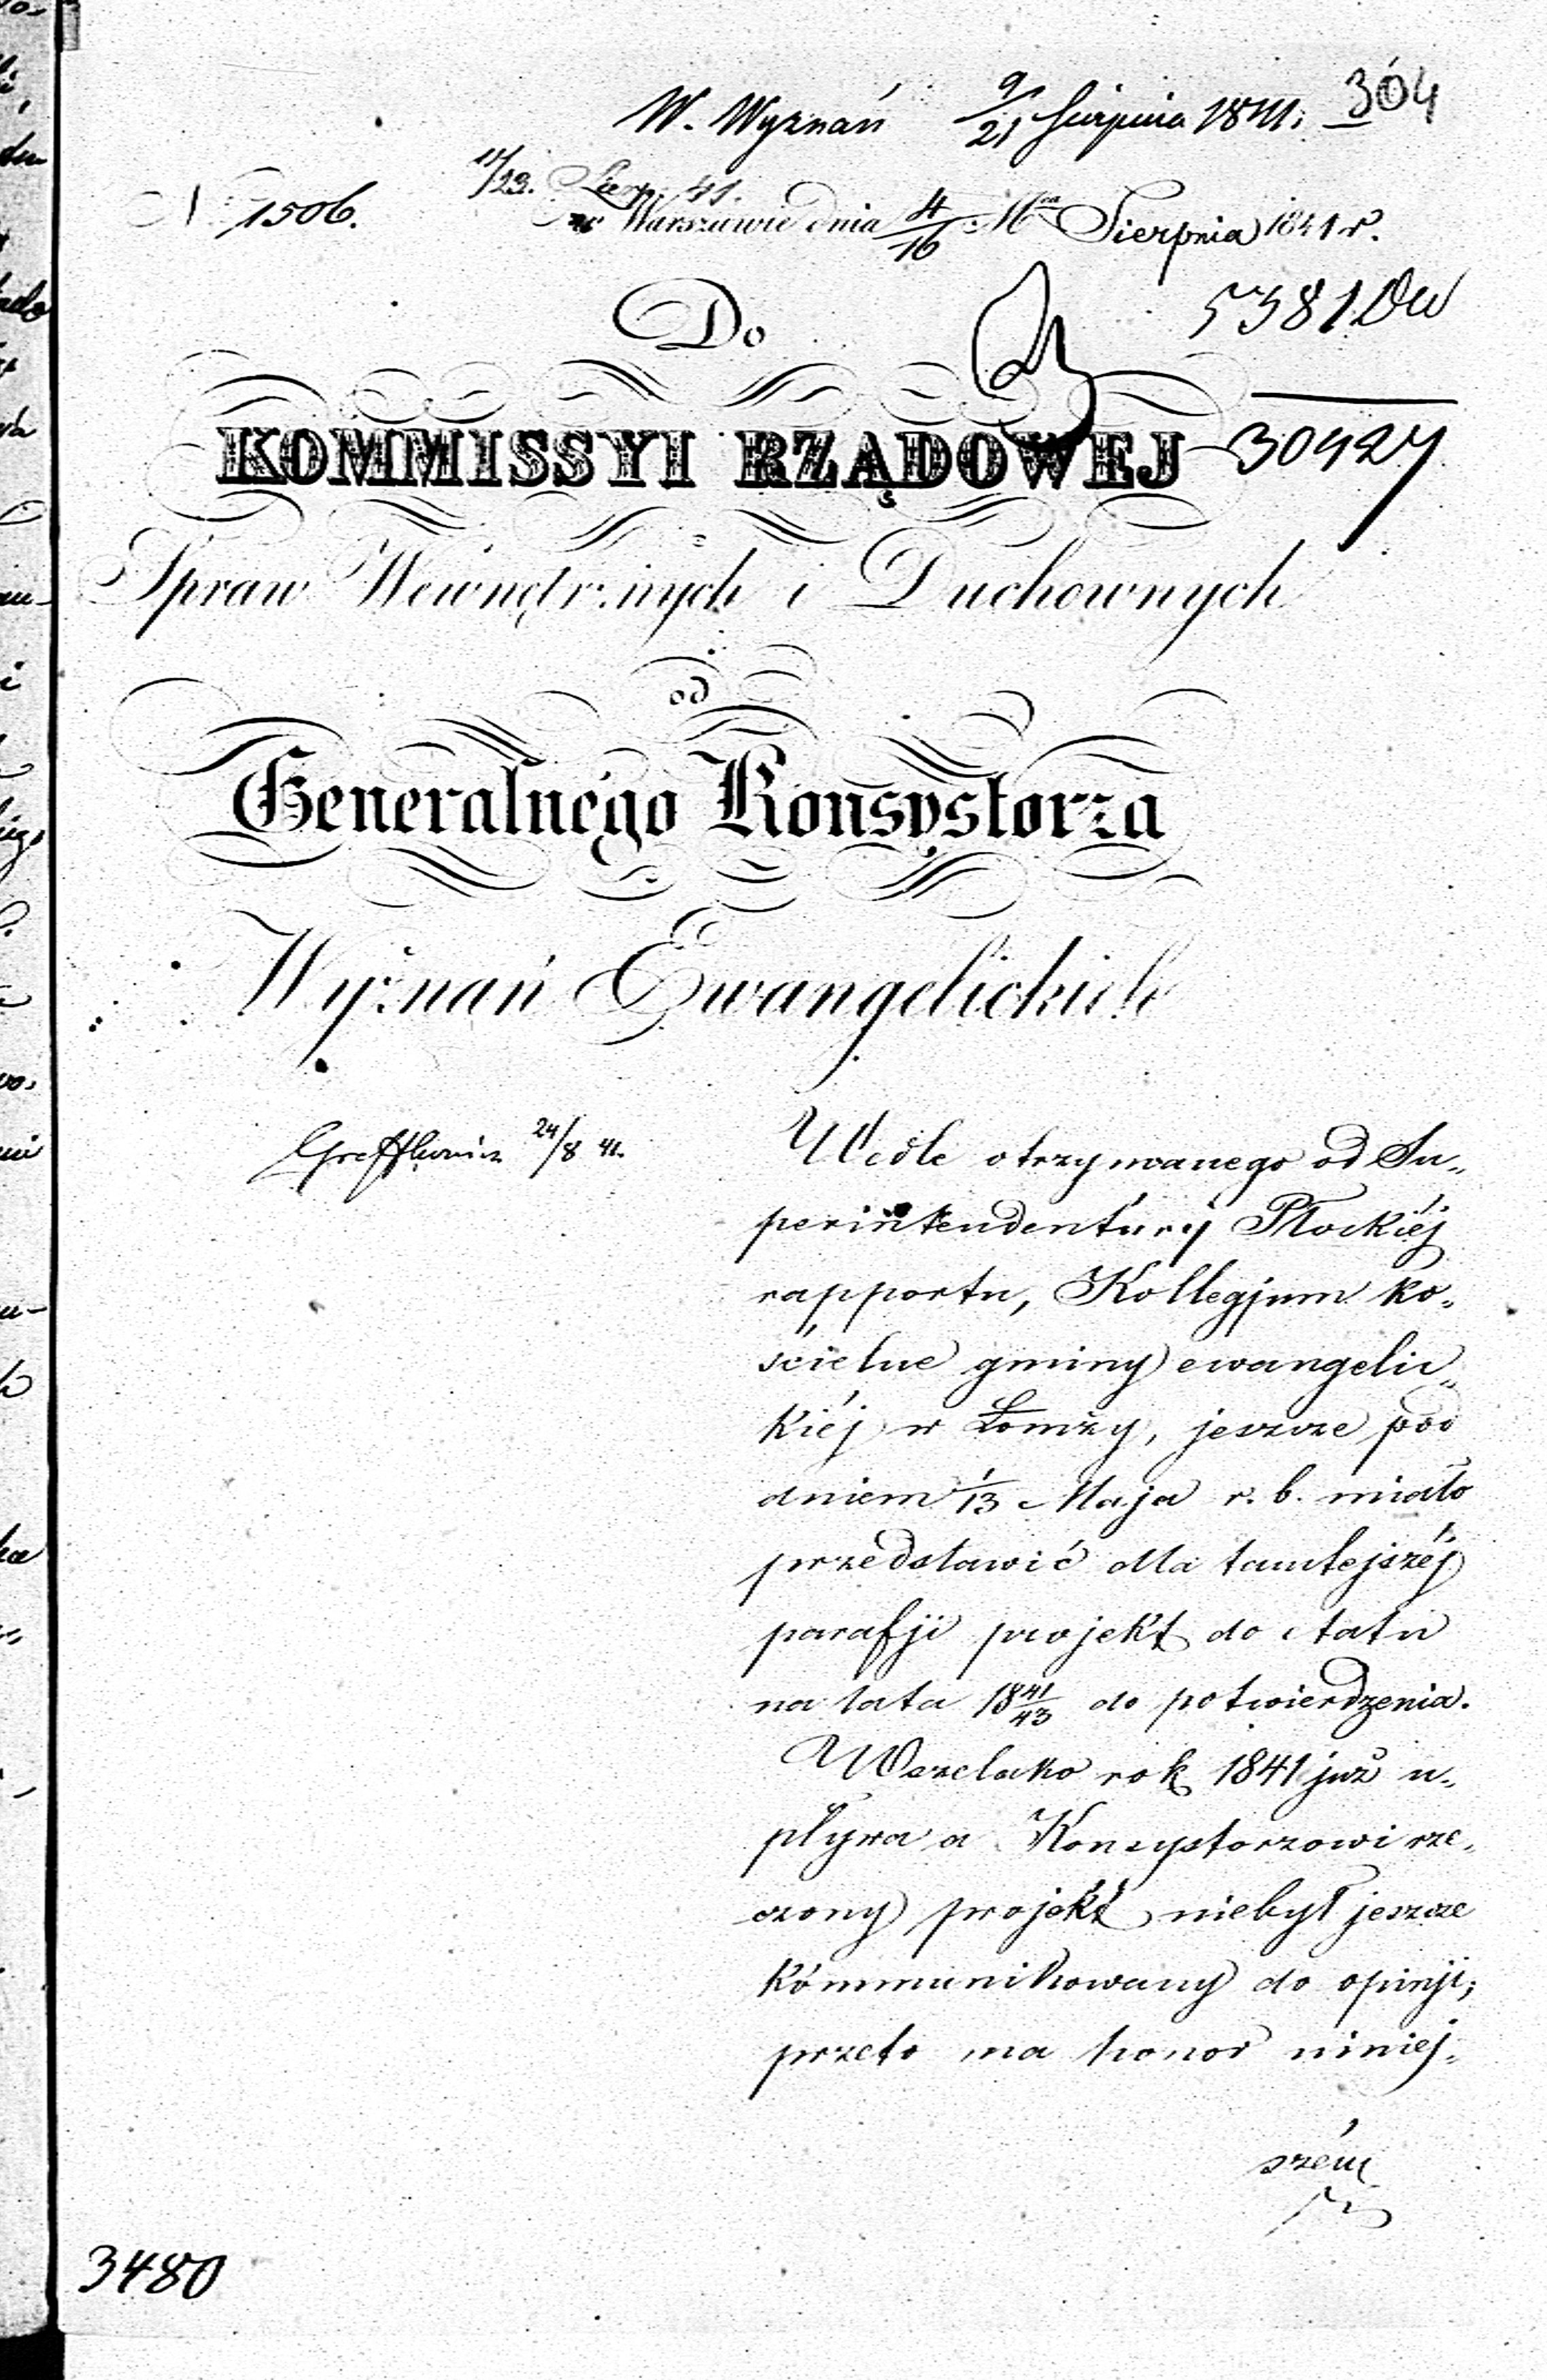 W. Wyznań 9/21 Sierpnia 1841. 304
11/23. Sierp. 41.
N 1506. w Warszawie dnia 4/16 Mca Sierpnia 1841 r.
Do
5381 DW
KOMMISSYI RZĄDOWEJ 30427
Spraw Wewnętrznych i Duchownych
od
Generalnego Konsystorza
Wyznań Ewangelickich
24/8 41.
Wedle otrzymanego od Su„
perintendentury Płockiéj
rapportu, Kollegjum ko„
ścielne gminy ewangelic„
kiéj w Łomży, jeszcze pod
dniem 1/13 Maja r. b. miało
przedstawić dla tamtejszéj
parafji projekt do etatu
na lata 1841/43 do potwierdzenia.
Wszelako rok 1841 już u„
pływa a Konsystorzowi rze„
czony projekt niebył jeszcze
kommunikowany do opinji;
przeto ma honor niniej„
szém
3480